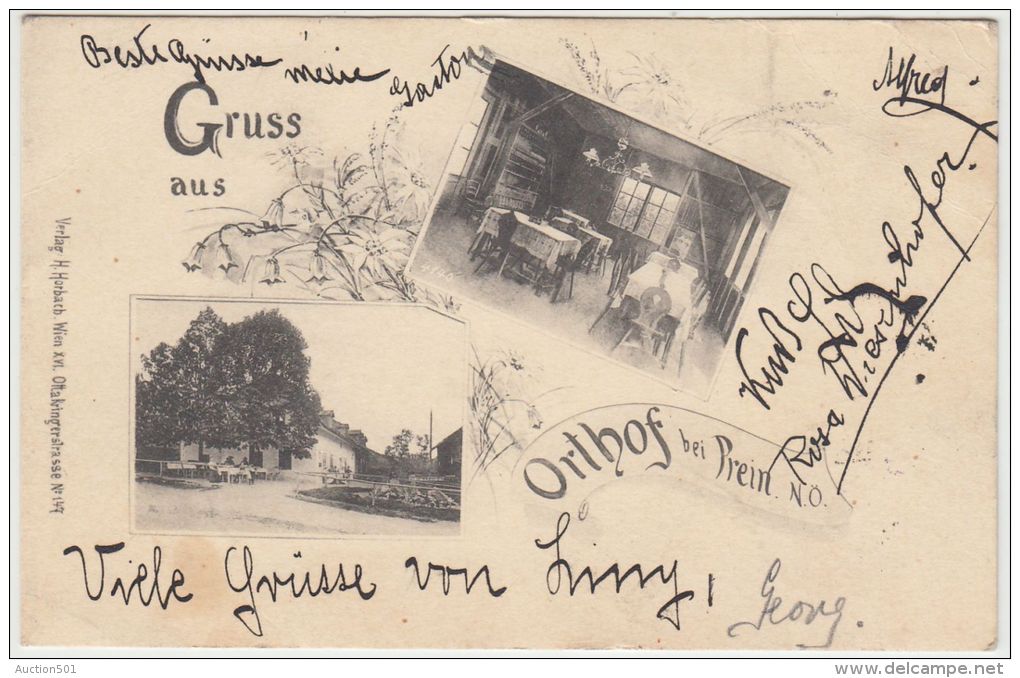 Beste Grüsse
Gaston
Alfred.
Gruss
aus
Verlag H. Horbach Wien XVI. Ottakringerstrasse No 147
Kurt
Rosa Wiesenhofer.
Orthof bei Prein N.Ö.
Viele Grüsse von
Georg.
Auction501
www.delcampe.net